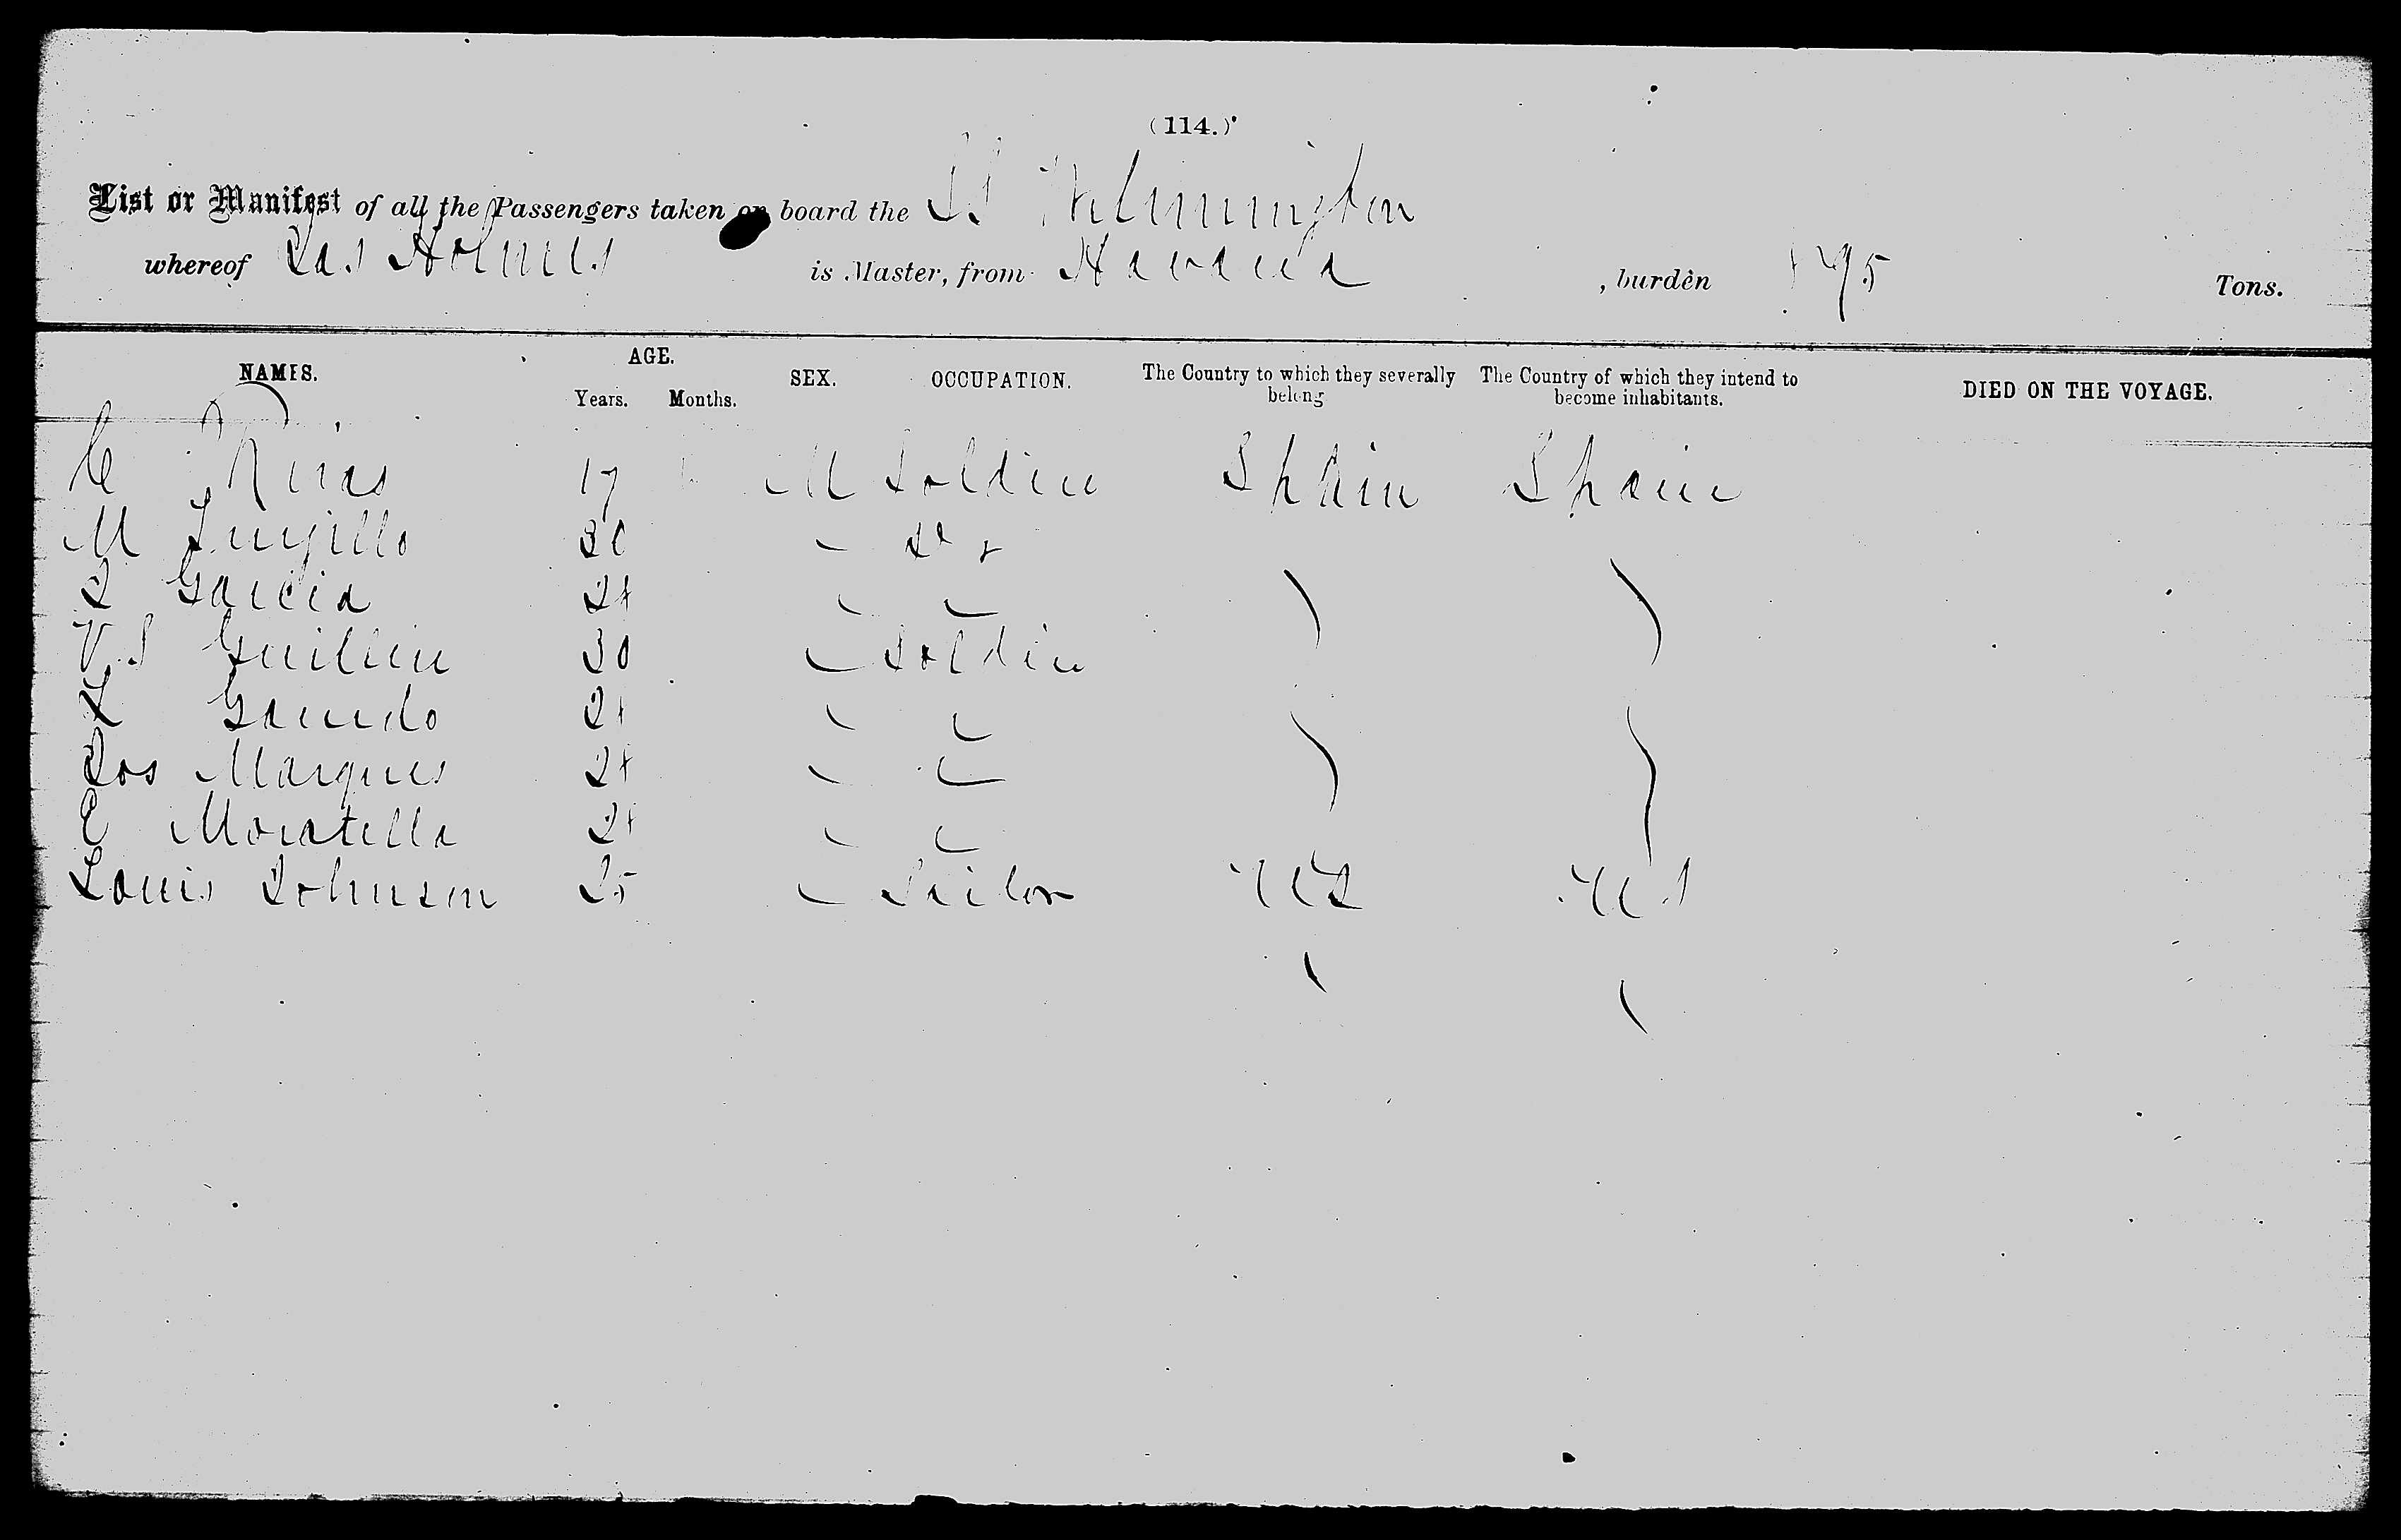 (114.)
List or Manifest of all the Passengers taken on board the SS Wilmington
whereof Jas Holmes is Master, from Havana, burden Tons.
NAMES. AGE. Years. Months. SEX. OCCUPATION. The Country to which they severally belong The Country of which they intend to become inhabitants. DIED ON THE VOYAGE.
C Rivas 17 M Soldier Spain Spain
M Trujillo 30 Do
J Garcia 24
V. S Guillen 30 Soldier
Garrido 24
Jos Marques 24
E Moratella 24
Louis Johnson 25 Sailor US US